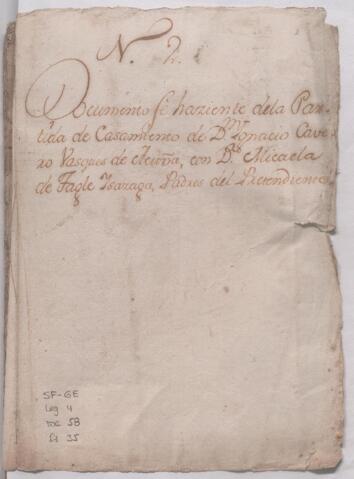 N. 2.
Documento fé haziente dela Par-
tida de Casamiento de Dn. Ignacio Cave-
ro Vasques de Acuña, con Da. Micaela
de Tagle Ysasaga, Padres del Pretendiente
SF-GE
Leg 4
Doc 58
fs 35